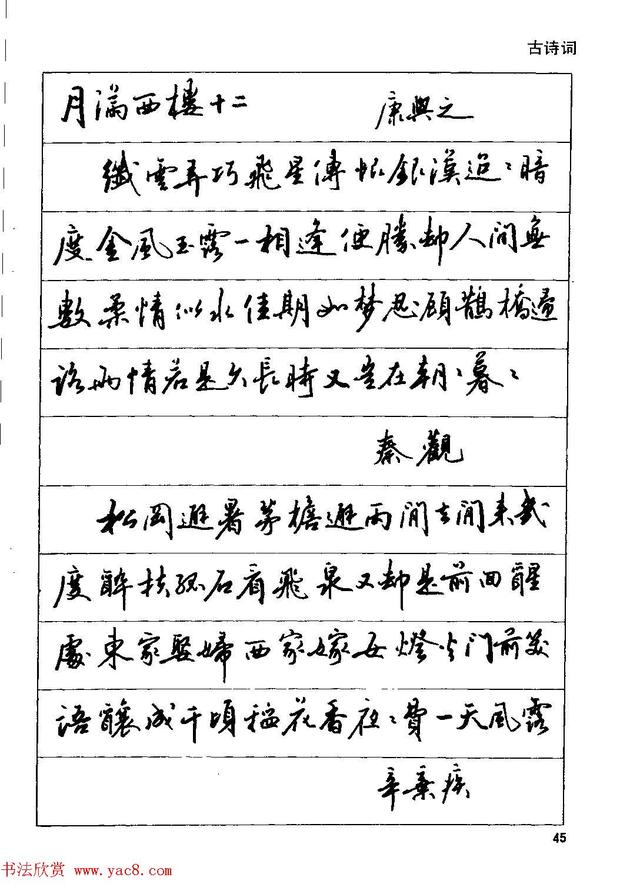 古诗词
月满西楼十二 康與之
纖雲弄巧飛星傳恨銀漢迢〻暗
度金風玉露一相逢便勝却人間無
數柔情似水佳期如梦忍顧鵲橋歸
路兩情若是久長時又豈在朝〻暮〻
秦觀
松岡避暑茅檐避雨閒去閒来幾
度醉扶孤石看飛泉又却是前回醒
處東家娶婦西家嫁女燈火门前笑
語釀成千頃稻花香夜〻費一天風露
辛棄疾
45
书法欣赏 www.yac8.com